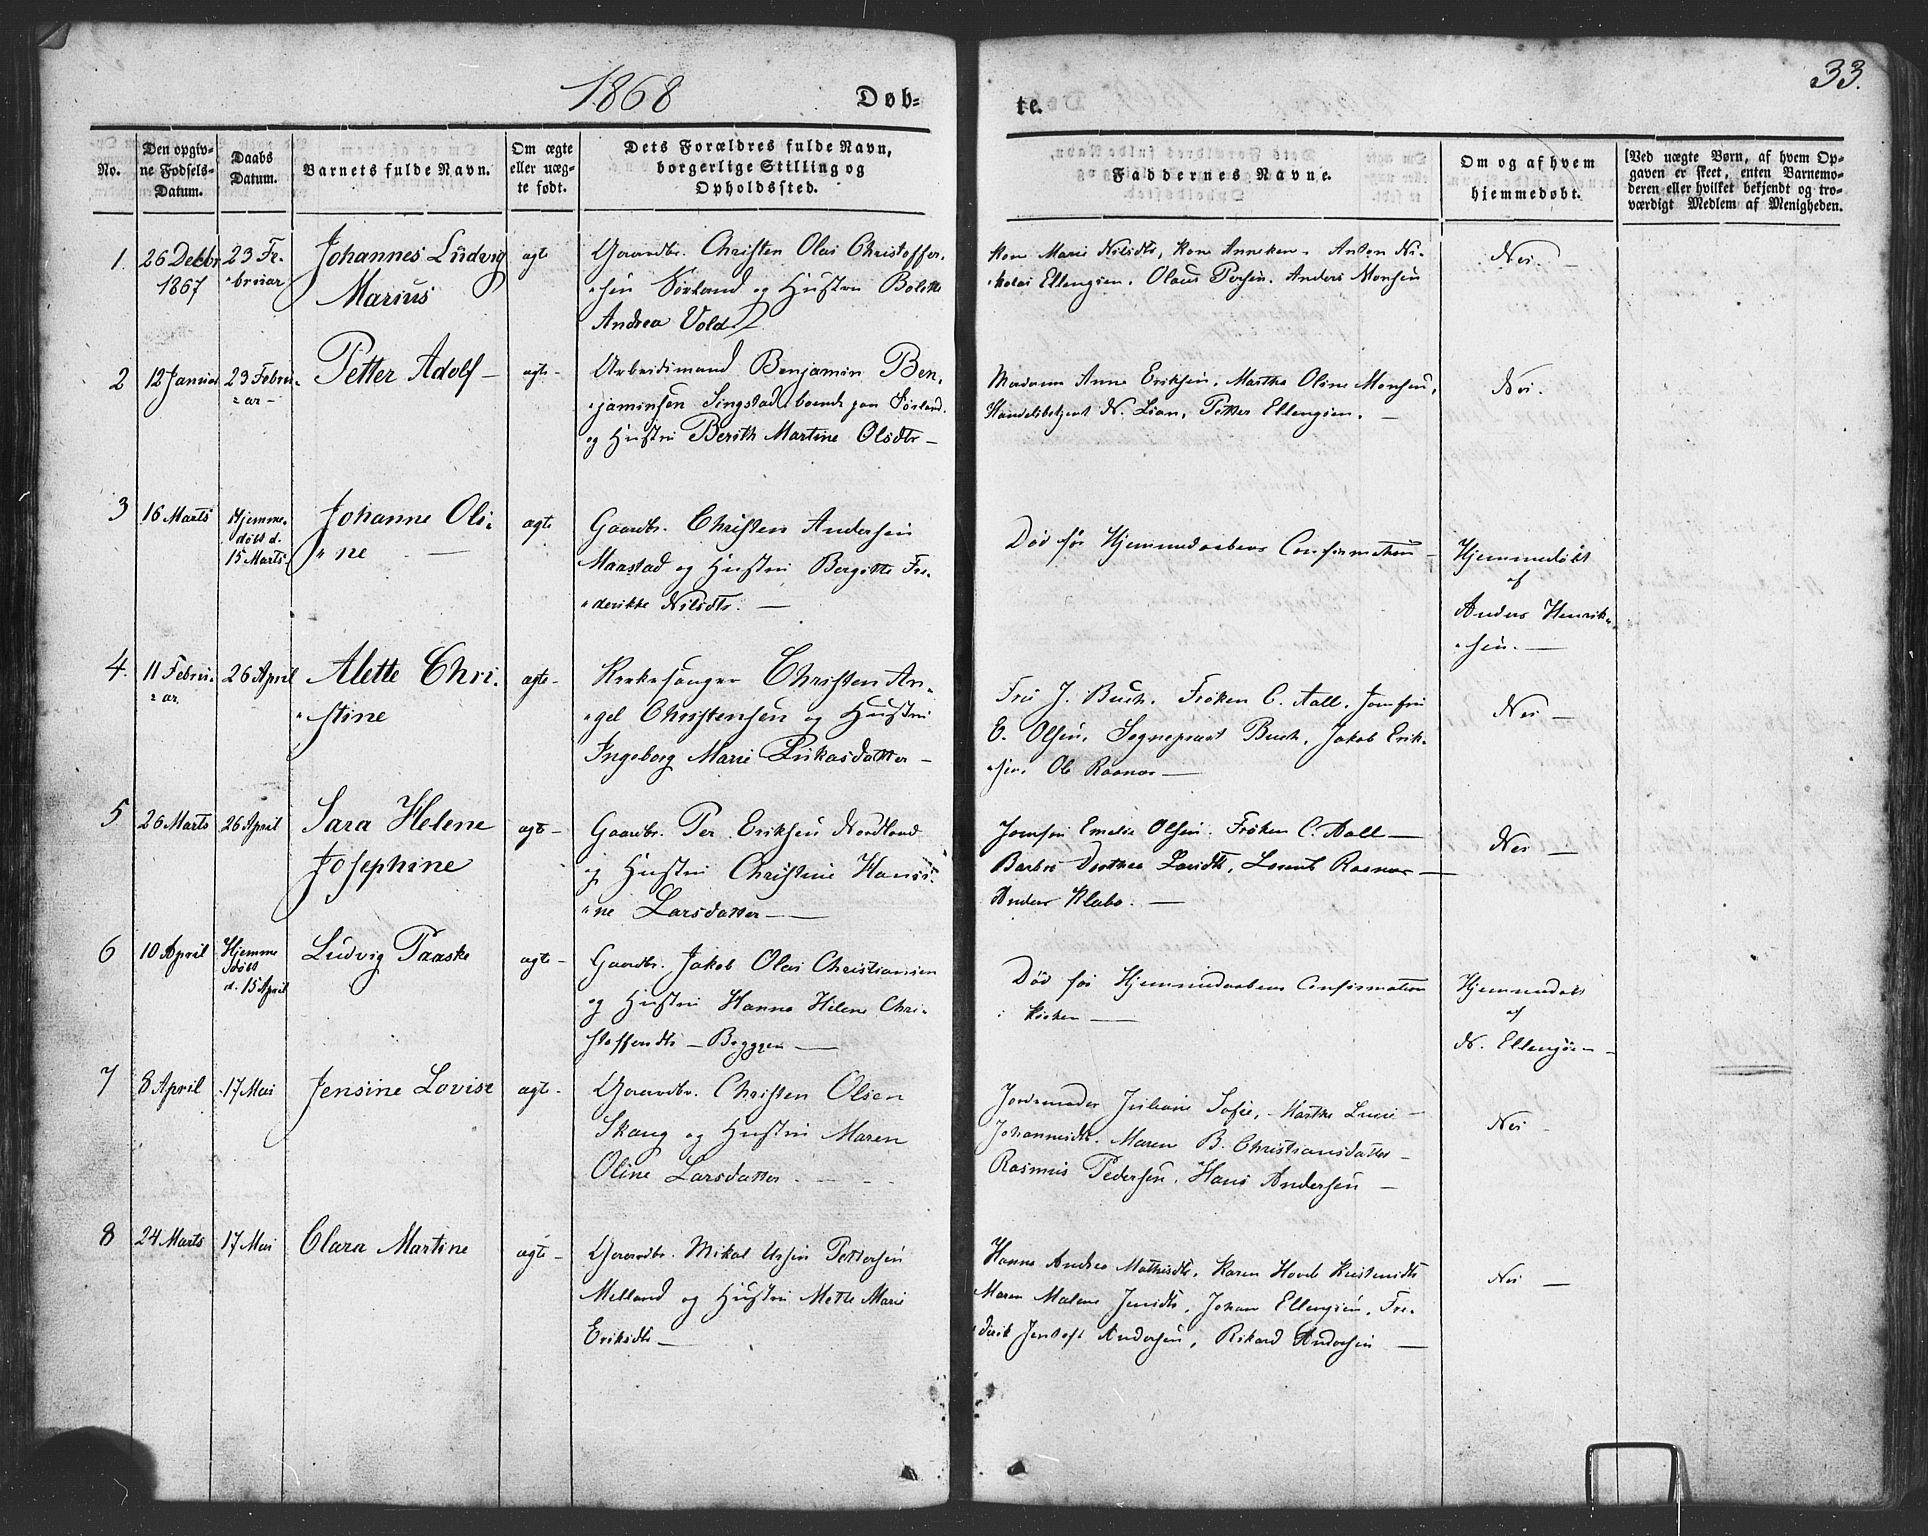 1868
Døb-
te.
33.
No.
Den opgiv-
ne Fødsels-
Datum.
Daabs
Datum.
Barnets fulde Navn.
Om ægte
eller uæg-
te født.
Dets Forældres fulde Navn,
borgerlige Stilling og
Opholdssted.
Faddernes Navne.
Om og af hvem
hjemmedøbt.
(Ved uægte Børn, af hvem Op-
gaven er skeet, enten Barnemo-
deren eller hvilket bekjendt og tro-
værdigt Medlem af Menigheden.
1.
26 Decbr
1867
23 Fe-
bruar
Johannes Ludvig
Marius
ægte
Gaardbr. Christen Olai Christoffer-
sen Sörland og Hustru Bolette
Andrea Vold
Kone Marie Nilsdtr, Kone Anneken - Anton Ni-
kolai Ellengsen. Olaus Persen. Anders Monsen
Nei. -
2
12 Januar
23 Febru-
ar -
Petter Adolf -
ægte -
Arbeidsmand Benjamin Ben-
jaminsen Singstad, boende paa Sørland.
og Hustru Berith Martine Olsdtr -
Madam Anne Eriksen, Martha Oline Monsen,
Handelsbetjent N. Lian, Petter Ellengsen. -
Nei.
3
16 Marts
Hjemme-
døbt d.
15 Marts.
Johanne Oli-
ne -
ægte
Gaardbr. Christen Andersen
Maastad og Hustru Bergitte Fre-
derikke Nilsdtr. -
Død før Hjemmedaabens Confirmation -
Hjemmedøbt
af
Anders Henrik-
sen. -
4.
11 Febru-
ar
26 April
Alette Chri-
stine
ægte -
Kirkesanger Christen An-
gel Christensen og Hustru
Ingeborg Marie Lukasdatter -
Fru J. Buch, Frøken C. Aall, Jomfru
E. Olsen, Sogneprest Buch, Jakob Erik-
sen, Ole Rasmus -
Nei -
5
26 Marts
26 April
Sara Helene
Josephine
ægte -
Gaardbr. Per Eriksen Nordland
og Hustru Christine Hansi-
ne Larsdatter -
Jomfru Emelie Olsen. Frøken C. Aall -
Barbro Dorthea Larsdtr, Lorents -
Anders Klabo. -
Nei -
6
10 April
Hjemme
døbt
d. 15 April
Ludvig Paaske
ægte -
Gaardbr. Jakob Olai Christiansen
og Hustru Hanna Helene Chri-
stoffersdtr -
Død før Hjemmedaabens Confirmation
i Kirken -
Hjemmedøbt
af
N. Ellengsen -
7
8 April
17 Mai
Jensine Lovise
ægte -
Gaardbr. Christen Olsen
Skaug og Hustru Maren
Oline Larsdatter. -
Jordemoder Juliane Sofie, - Marthe Lucie -
Johannesdtr. Maren B. Christiansdatter -
Rasmus Pedersen, Hans Andersen -
Nei -
8
24 Marts
17 Mai
Clara Martine
ægte -
Gaardbr. Mikal Ursin Pettersen
Melland og Hustru Mette Marie
Eriksdtr -
Hanna Andrea Mathisdtr, Karen Hovel
Maren Malene Jensdtr, Johan Ellengsen, Fre-
derik Jentoft Andersen, Rikard Andersen -
Nei -